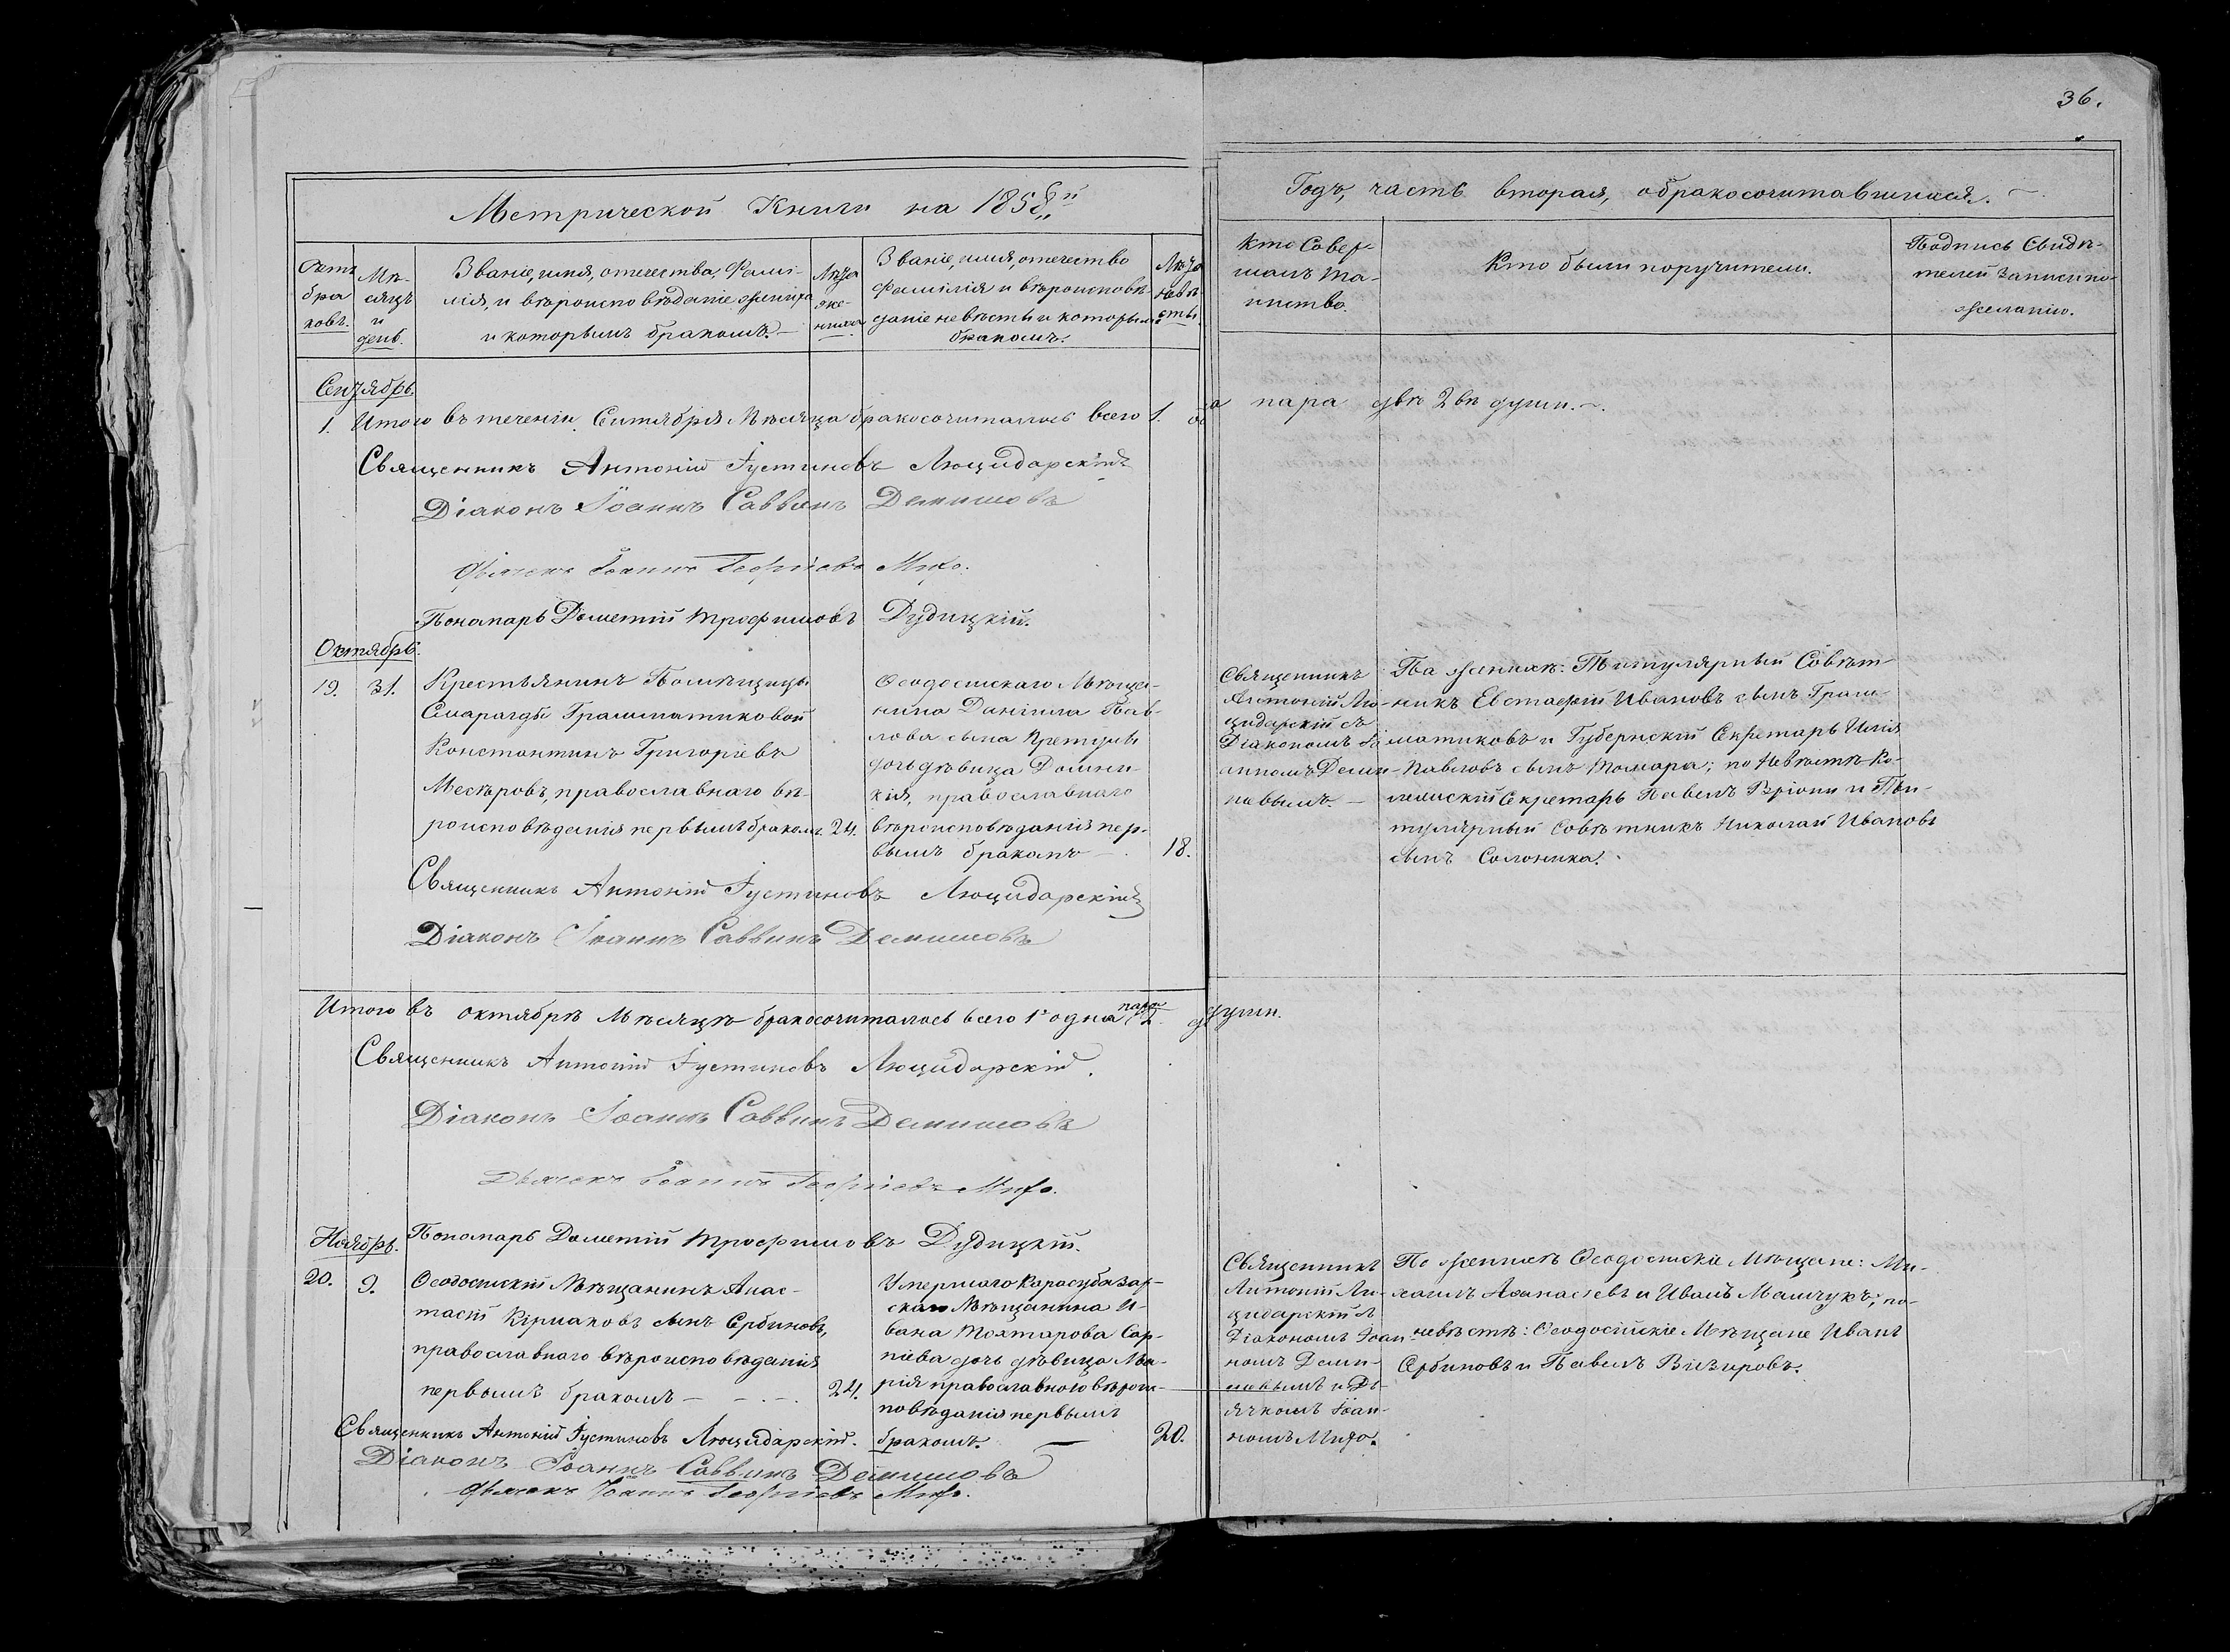 36.
Метрической Книги на 1858й
Годъ, часть вторая, о бракосочитавшихся.
Счетъ браковъ.
Мѣсяцъ и день.
Званіе, имя, отчество, фамилія, и вѣроисповѣданіе жениха и которымъ бракомъ.
Лѣта жениха
Званіе, имя, отчество фамилія и вѣроисповѣданіе невѣсты и которымъ бракомъ.
Лѣта невѣсты.
Кто Совершалъ таинство.
Кто были поручители.
Подпись Свидѣтелей записи по желанію.
Сентябрь.
1. Итого въ теченіи Сентября Мѣсяца бракосочиталось всего 1. пара двѣ 2вѣ души.
Священникъ Антоній Іустиновъ Люцидарскій
Діаконъ Іоаннъ Саввинъ
Іоаннъ Георгіевъ
Пономарь Дометій Трофимовъ Дудицкій.
Октябрь.
19. 31.
Крестьянинъ Помѣщицы
Смарагды Грамматиковой
Константинъ Григоріевъ
Месѣровъ, православнаго вѣ-
роисповѣданія первымъ бракомъ. 24.
Ѳеодосійскаго Мѣща-
нина Даніила Пав-
лова сына
дочь дѣвица Домни-
кія, православнаго
вѣроисповѣданія пер-
вымъ бракомъ 18.
Священникъ
Антоній Лю-
цидарскій съ
Діакономъ Іо-
анномъ
По женихѣ: Титулярный Совѣт-
никъ Евстафій Ивановъ сынъ Грам-
матиковъ и Губернскій Секретарь Илія
Павловъ сынъ Томара; по Невѣстѣ Ко-
лежскій Секретарь Павелъ Вріони и Ти-
тулярный Совѣтникъ Николай Ивановъ
сынъ Солоника.
Священникъ Антоній Іустиновъ Люцидарскій
Діаконъ Іоаннъ Саввинъ
Итого въ октябрѣ Мѣсяцѣ бракосочиталось всего 1 одна пара 2. души.
Священникъ Антоній Іустиновъ Люцидарскій.
Діаконъ Іоаннъ Саввинъ
Дьячекъ Іоаннъ Георгіевъ
Пономарь Дометій Трофимовъ Дудицкій.
Ноябрь.
20. 9.
Ѳеодосійскій Мѣщанинъ Анас-
тасій Киріаковъ сынъ Сербиновъ,
православнаго вѣроисповѣданія
первымъ бракомъ 24.
Умершаго Карасубазар-
скаго Мѣщанина И-
вана
дочь дѣвица Ма-
рія православнаго вѣроис-
повѣданія первымъ
бракомъ. 20.
Священникъ
Антоній Лю-
цидарскій съ
Діакономъ Іоан-
номъ
и Дь-
ячкомъ Іоан-
номъ
По женихѣ Ѳеодосійскіе Мѣщане: Ми-
хаилъ Аѳанасьевъ и Иванъ Мамчукъ; по
невѣстѣ: Ѳеодосійскіе Мѣщане Иванъ
Сербиновъ и Павелъ Визировъ.
Священникъ Антоній Іустиновъ Люцидарскій.
Діаконъ Іоаннъ Саввинъ
Дьячекъ Іоаннъ Георгіевъ